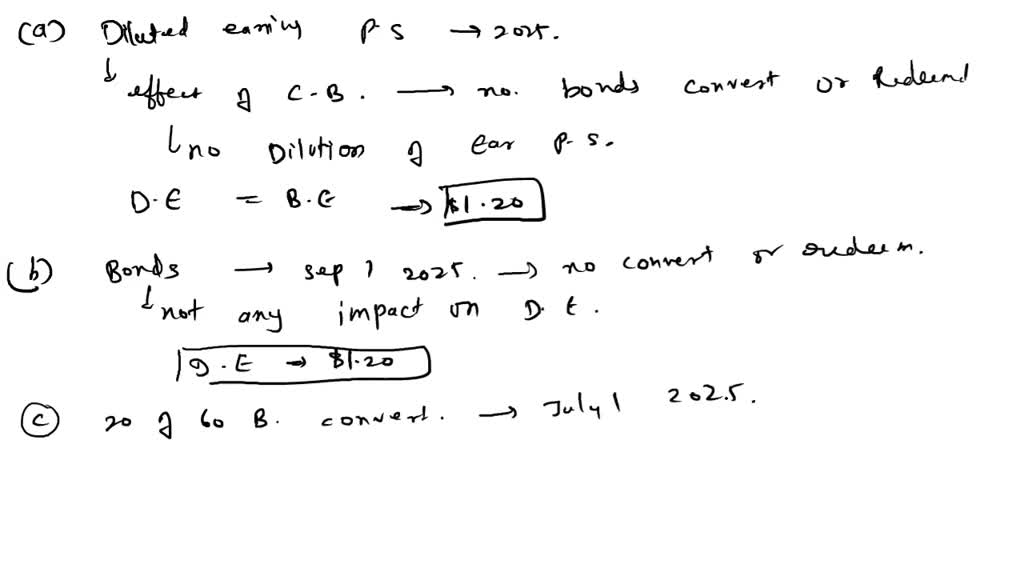 (a) Diluted earning P S → 2025.
↓ effect of C-B. → no. bonds convert or Redeemd
↳ no Dilution of Ear p.s.
D.E = B.E → $1.20
(b) Bonds → sep 1 2025. → no convert or redeem.
↓ not any impact on D.E.
D.E → $1.20
(c) 20 of 60 B. convert. → July 1 2025.